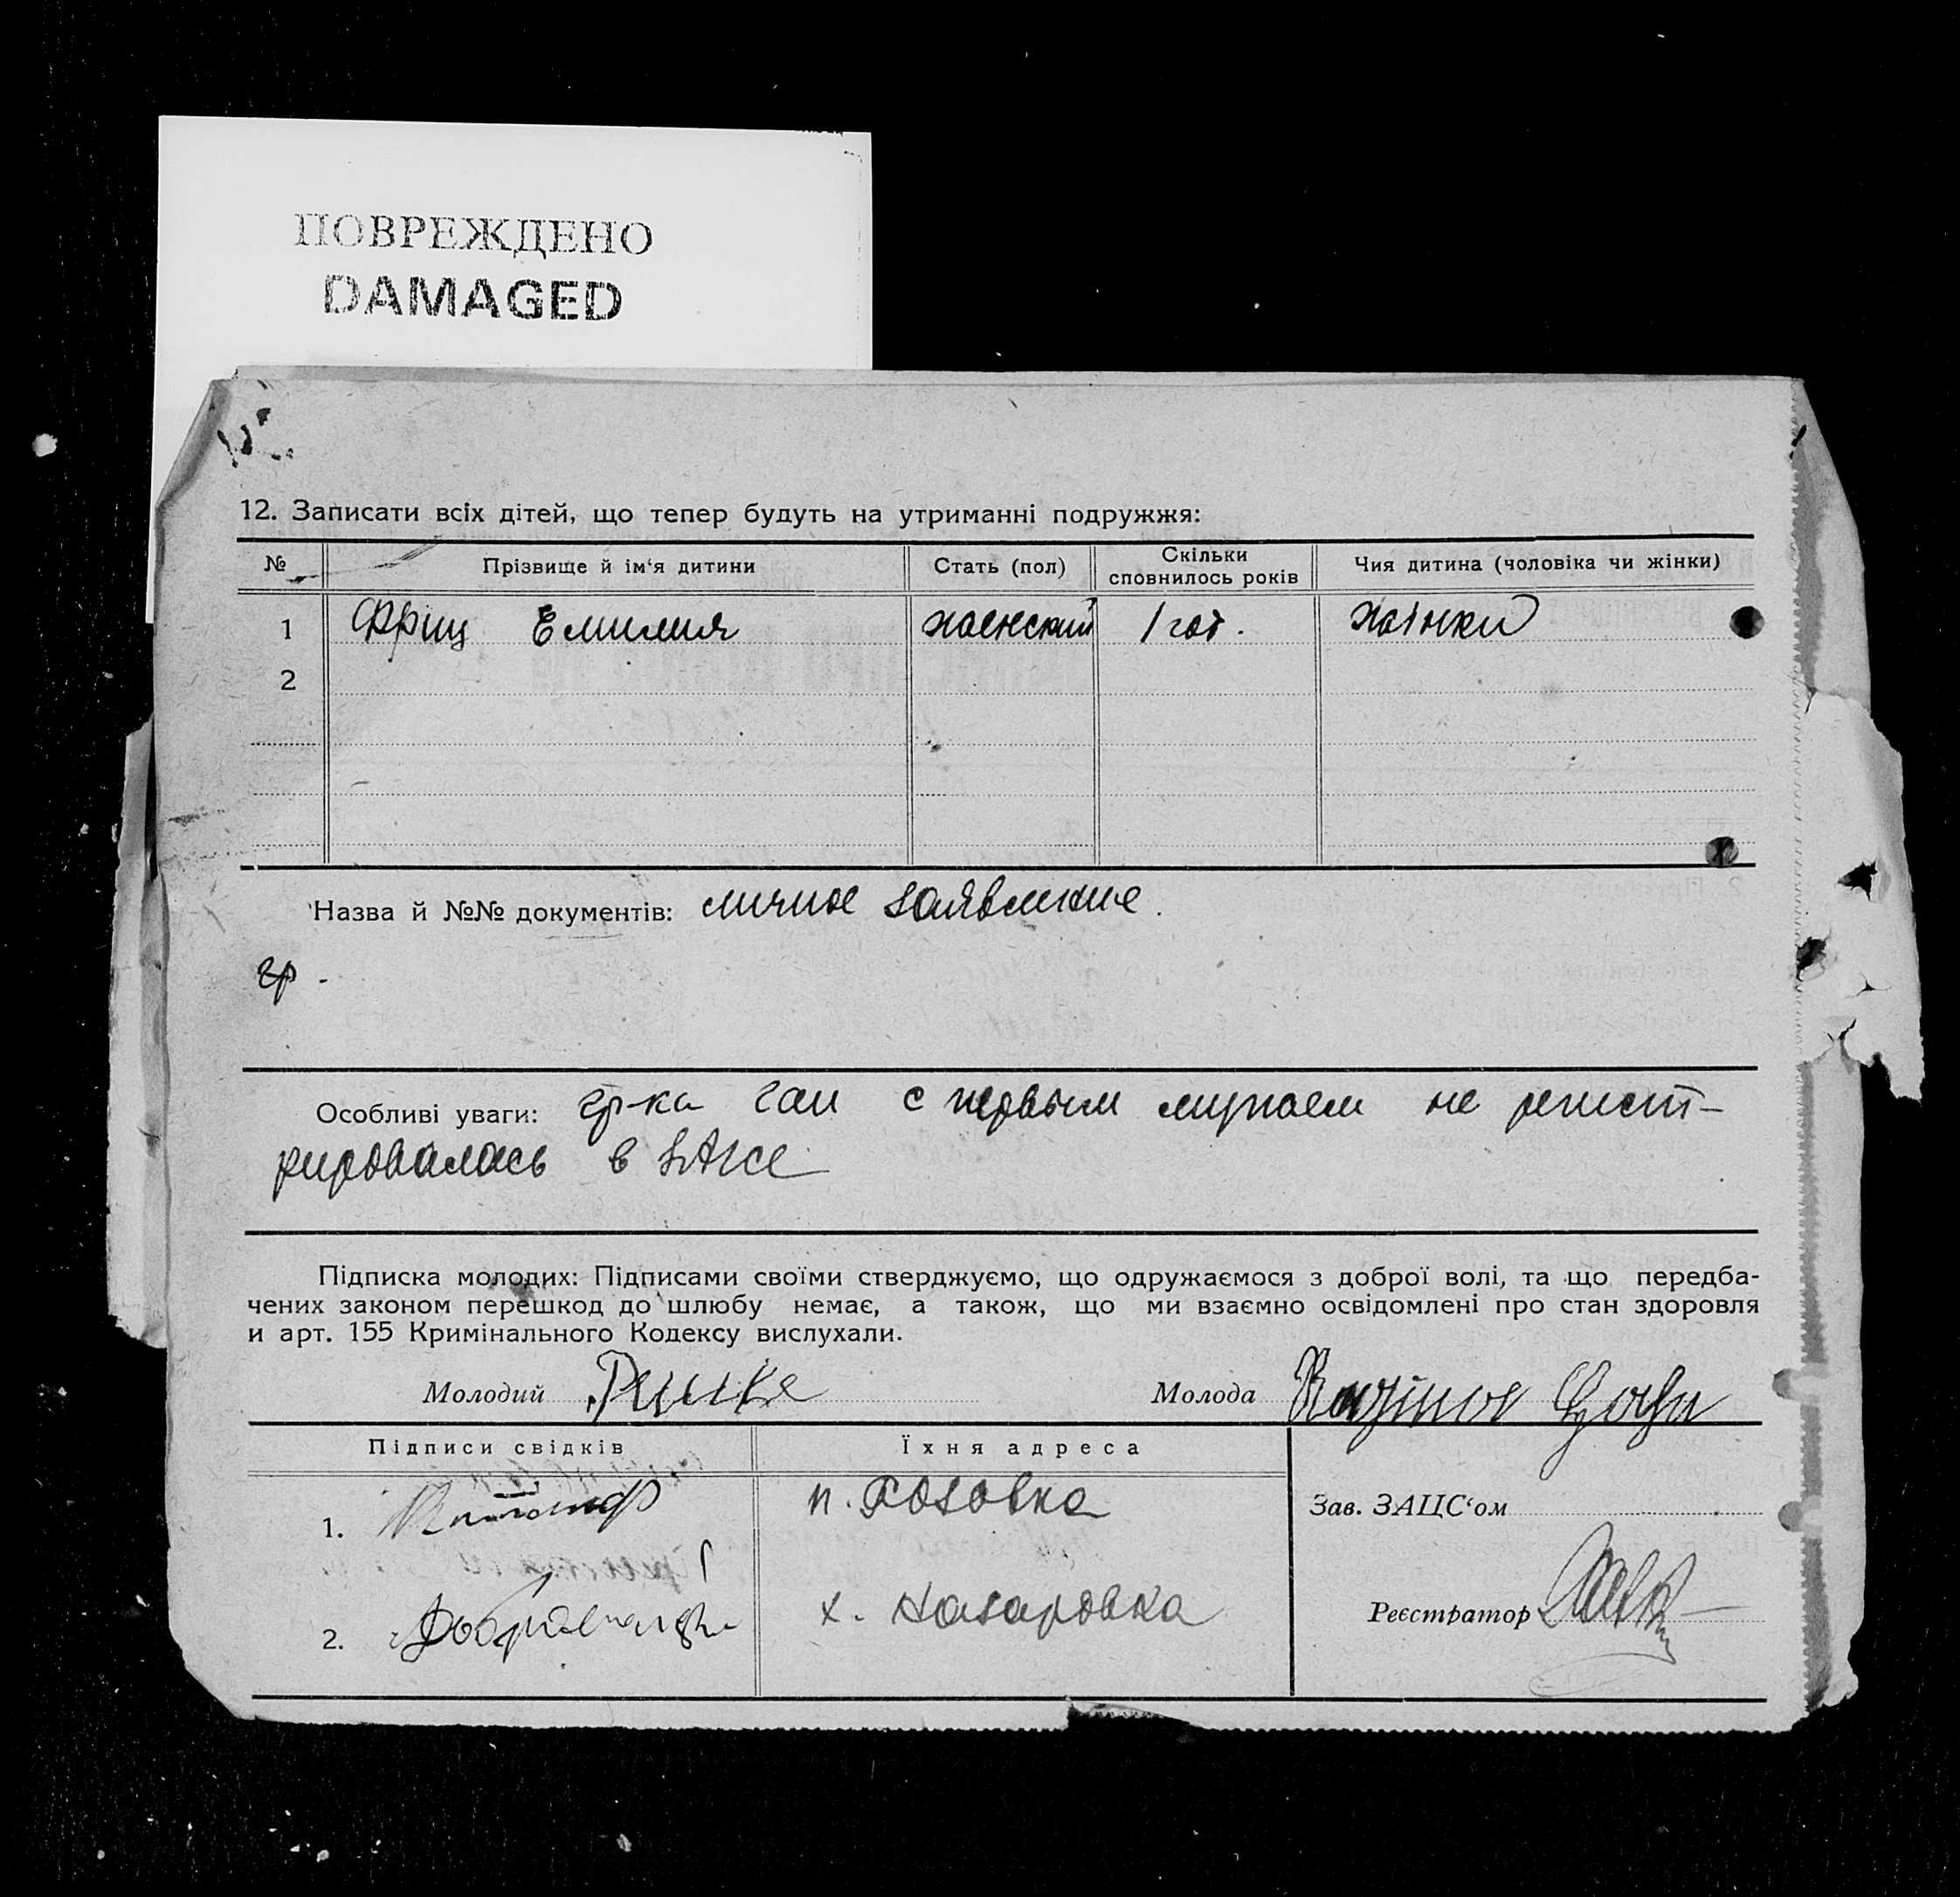 ПОВРЕЖДЕНО
DAMAGED
12. Записати всіх дітей, що тепер будуть на утриманні подружжя:
№ Прізвище й ім'я дитини Стать (пол) Скільки сповнилось років Чия дитина (чоловіка чи жінки)
1 Фриц Емилия женский 1 год. жінки
2
Назва й №№ документів: личное заявление.
гр.
Особливі уваги: гр-ка Ган с первым мужем не регист-
рировалась в ЗАГСе
Підписка молодих: Підписами своїми стверджуємо, що одружаємося з доброї волі, та що передба-
чених законом перешкод до шлюбу немає, а також, що ми взаємно освідомлені про стан здоровля
и арт. 155 Кримінального Кодексу вислухали.
Молодий Молода
Підписи свідків Їхня адреса
1. п. Розовка Зав. ЗАЦС'ом
2. х. Назаровка Реєстратор